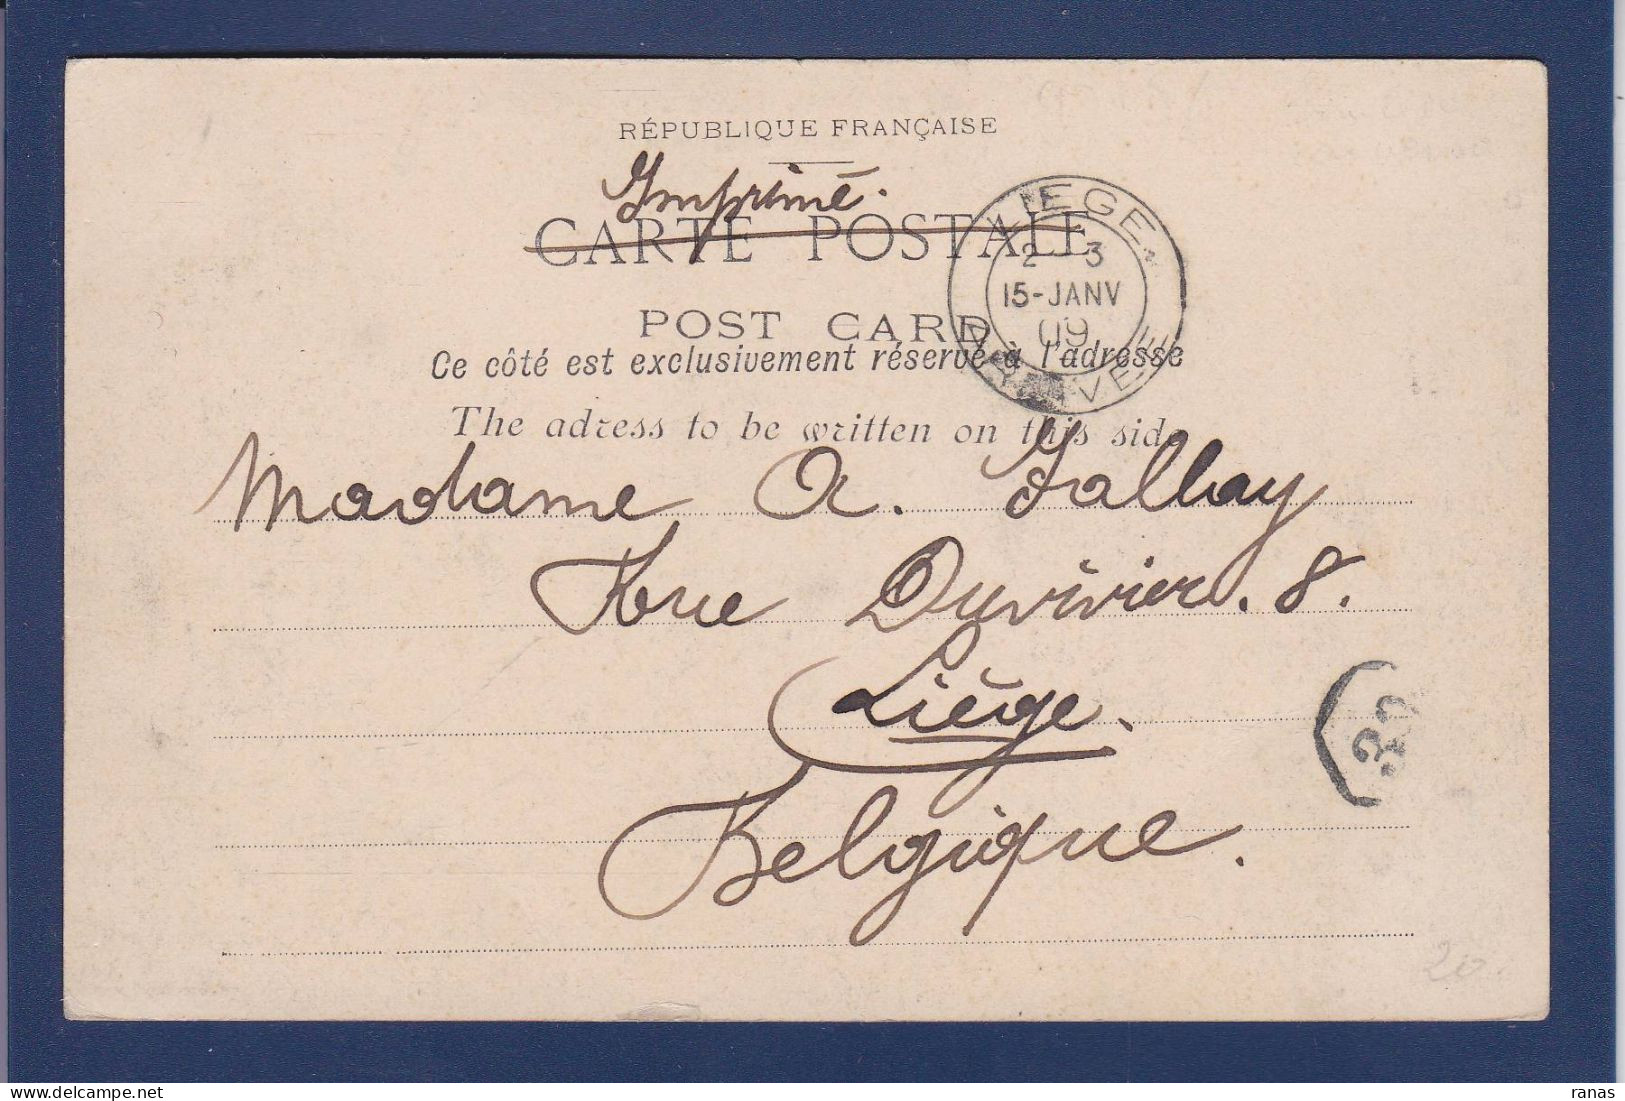 RÉPUBLIQUE FRANÇAISE
Imprimé.
CARTE POSTALE
LIEGE
2 3
15-JANV
09
ARRIVEE
POST CARD
Ce côté est exclusivement réservé à l'adresse
The adress to be written on this side
Madame A. Jalhay
Rue Duvivier. 8.
Liége.
Belgique.
20
ranas